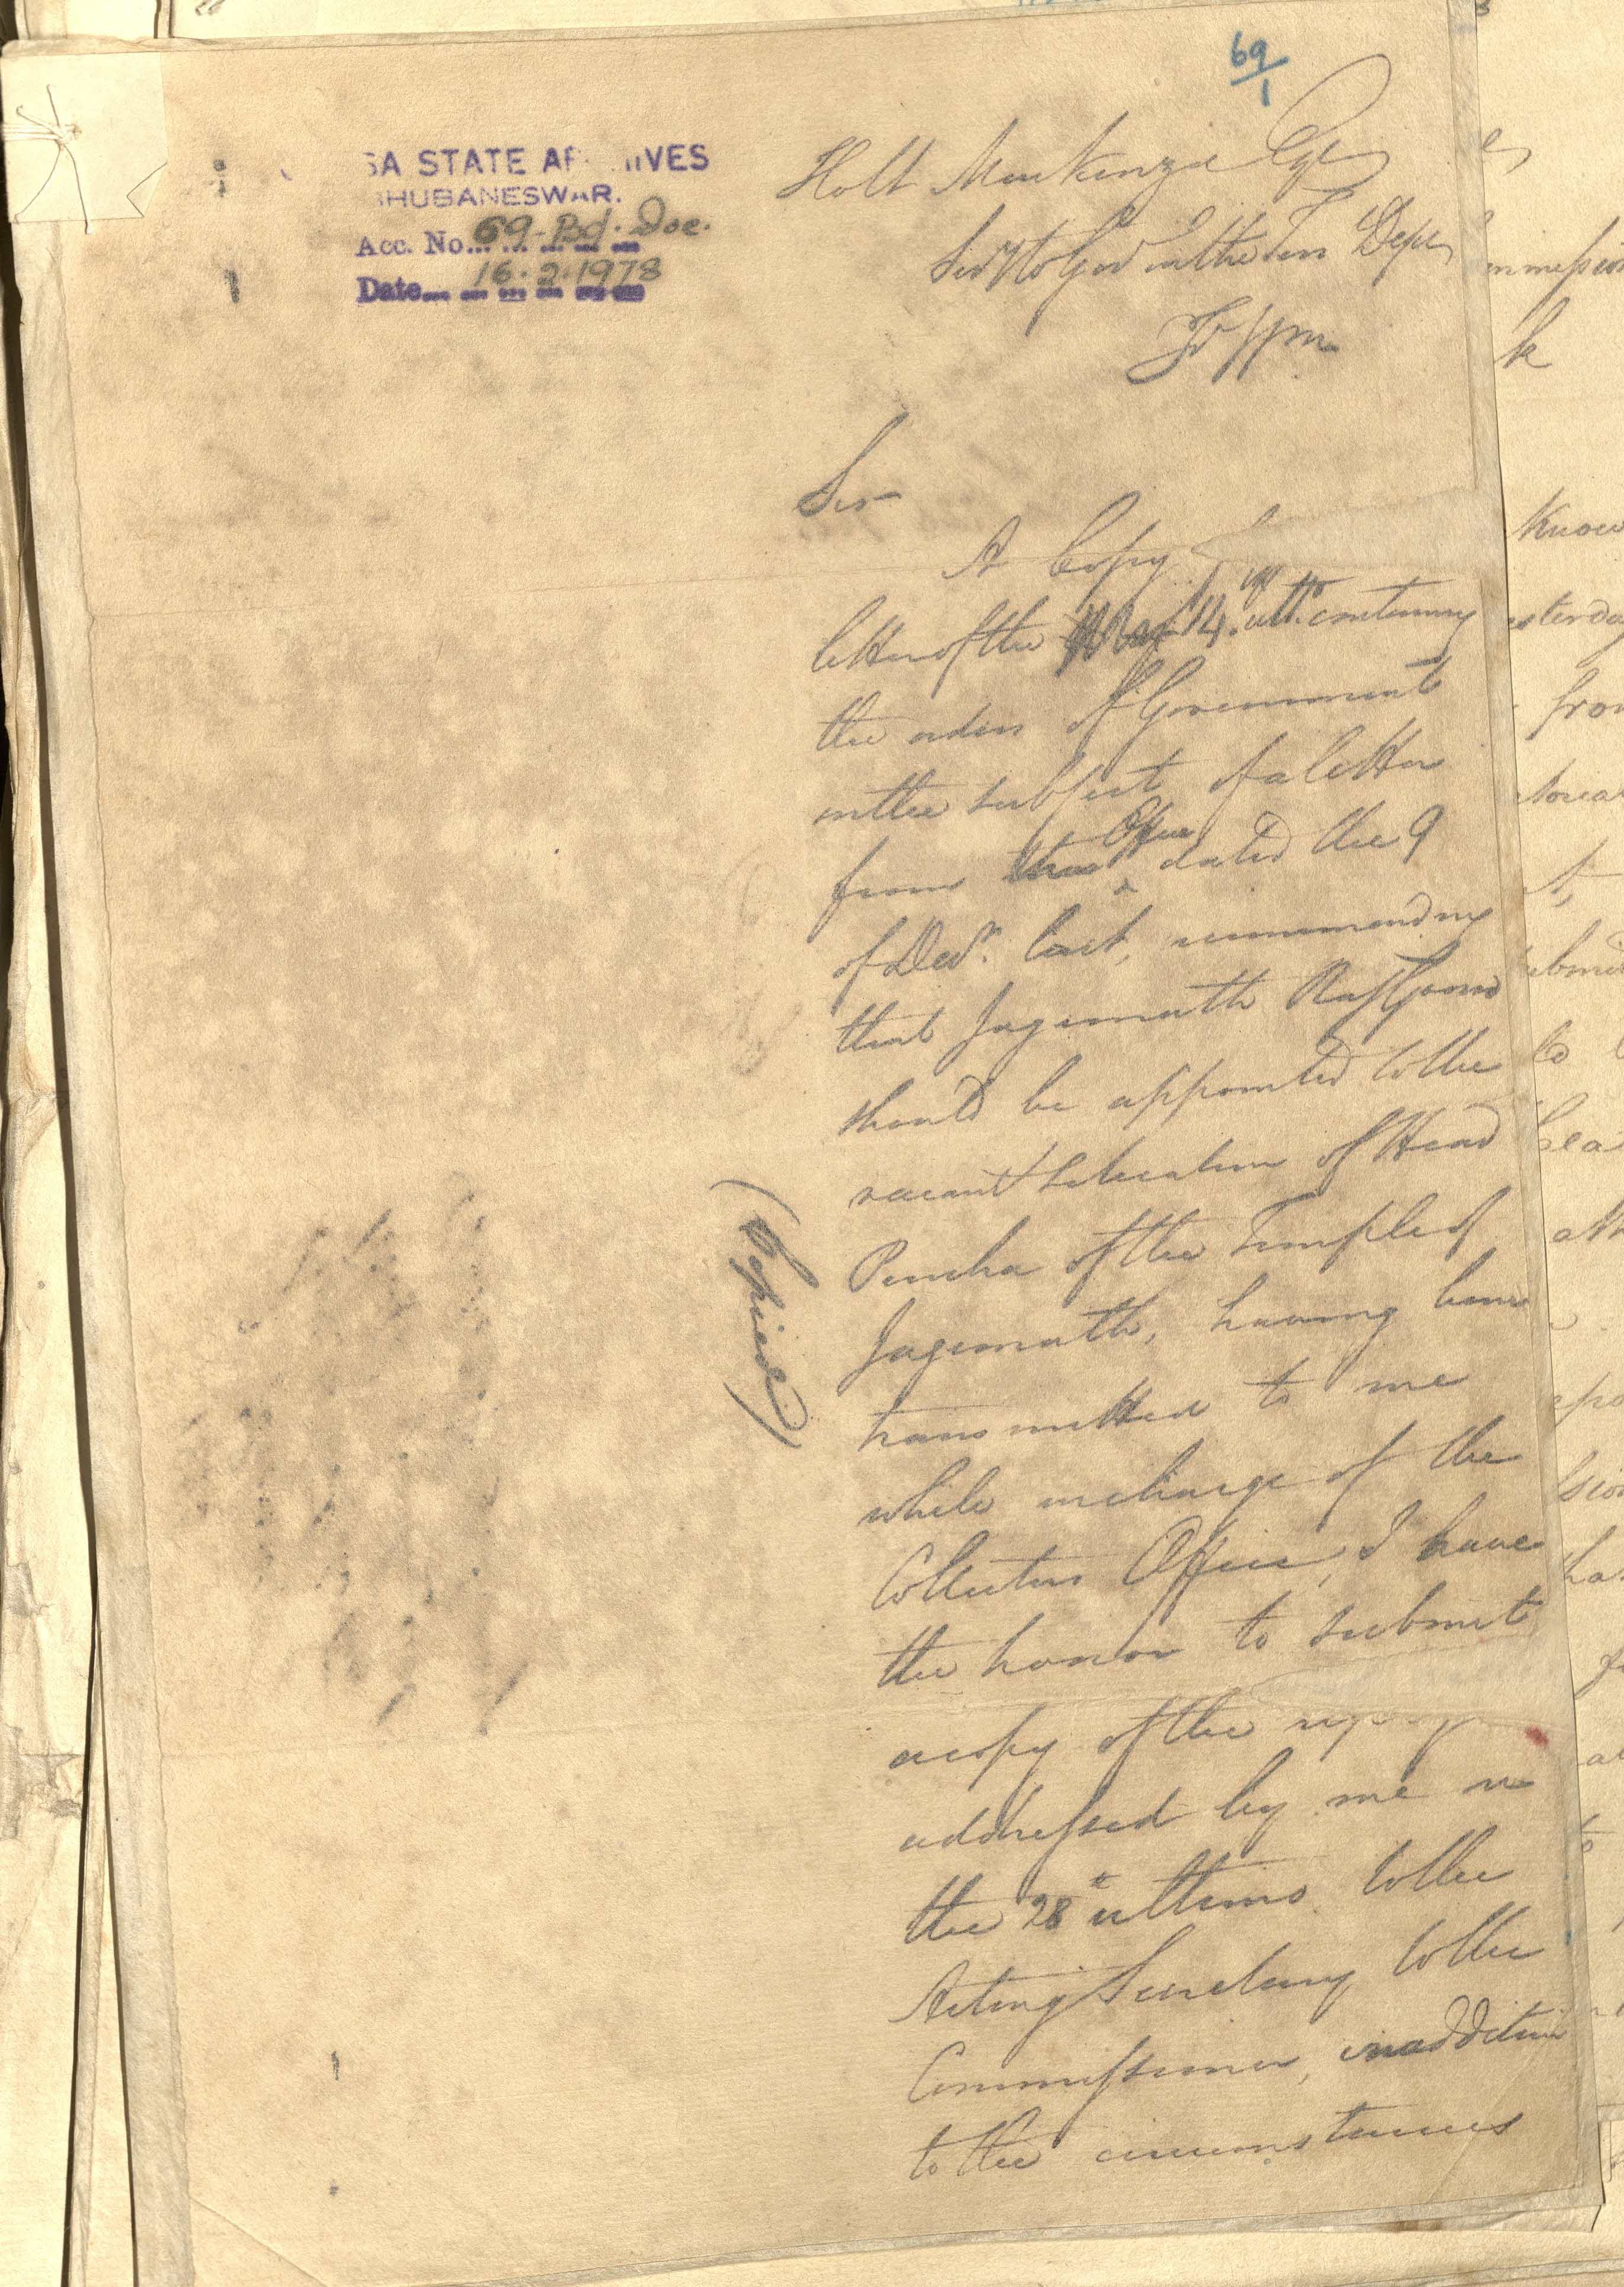 69/1
SA STATE AR IVES
BHUBANESWAR.
Acc. No. 69-Bd. Doc.
Date 16.2.1978
Holt MacKenzie Esqr
Secy to Govt in the Terr Dept
Ft Wm
Sir
A Copy
letter of the 14. ulto. containing
the orders of Government
on the subject of a letter
from Office dated the 9
of Decr. last, recommending
that Jagernath Rajgooroo
should be appointed to the
vacant situation of Head
Purcha of the Temple of
Jagernath, having been
transmitted to me
while in charge of the
Collectors Office, I have
the honor to submit
a copy of the
addressed by me on
the 28th ultimo to the
Acting Secretary to the
Commissioner, in addition
to the circumstances
(Copied)